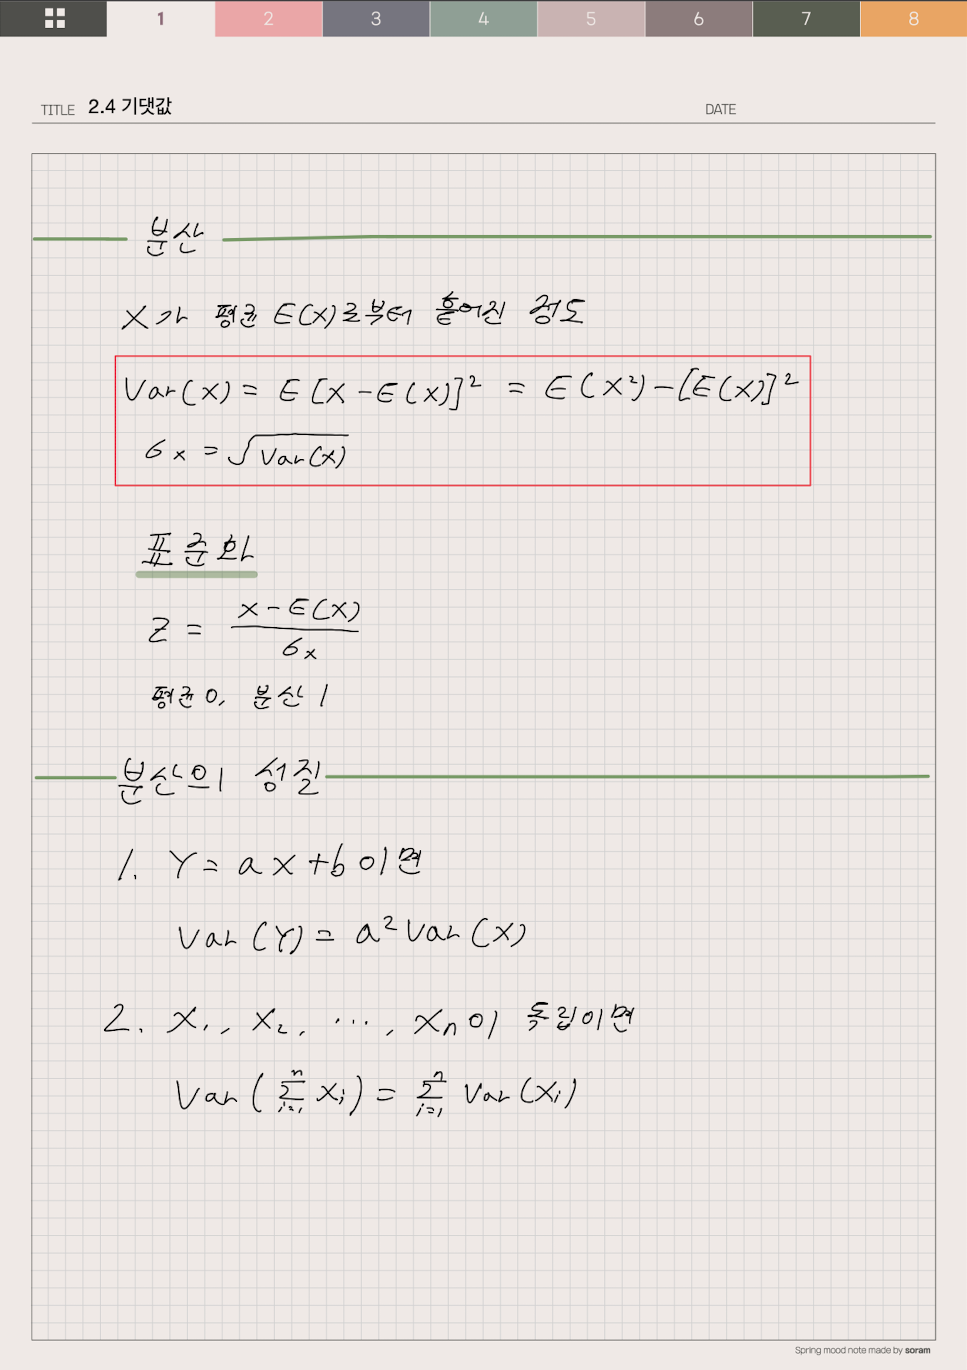 1 2 3 4 5 6 7 8
TITLE 2.4 기댓값 DATE
분산
X가 평균 E(X)로부터 흩어진 정도
Var(X) = E[X-E(X)]² = E(X²)-[E(X)]²
σx = √Var(X)
표준화
Z = (X-E(X))/σx
평균 0, 분산 1
분산의 성질
1. Y = aX+b 이면
Var(Y) = a²Var(X)
2. X₁, X₂, ⋯, Xn이 독립이면
Var(∑ⁿᵢ₌₁ Xᵢ) = ∑ⁿᵢ₌₁ Var(Xᵢ)
Spring mood note made by soram